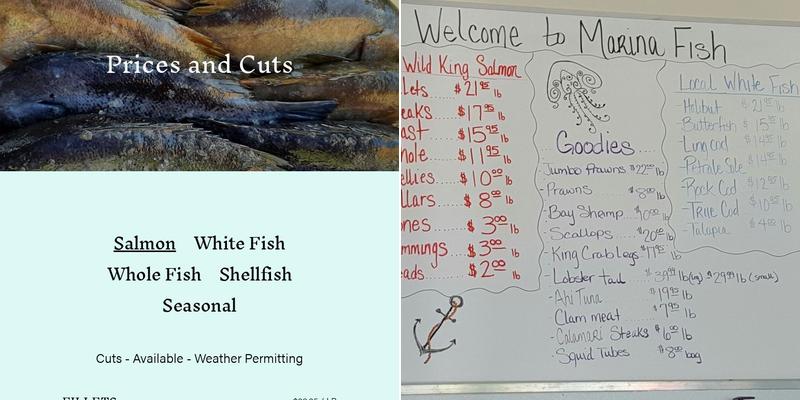 Prices and Cuts
Salmon White Fish
Whole Fish Shellfish
Seasonal
Cuts - Available - Weather Permitting
FILLETS
Welcome to Marina Fish
Wild King Salmon
lets $21 95 lb
eaks $17 95 lb
ast $15 95 lb
hole $11 95 lb
ellies $10 00 lb
llars $8 00 lb
nes $3 00 lb
mmings $3 00 lb
eads $2 00 lb
Goodies
Jumbo Prawns $22 00 lb
-Prawns $8 00 lb
-Bay Shrimp lb
-Scallops $20 lb
-King Crab Legs lb
-Lobster tail lb (lg) $29 99 lb (small)
-Ahi Tuna $19 95 lb
-Clam meat $7 95 lb
-Calamari Steaks $6 00 lb
-Squid Tubes $8 00 bag
Local White Fish
-Halibut $21 95 lb
-Butterfish $15 95 lb
-Ling cod $14 95 lb
-Petrale Sole $14 95 lb
-Rock Cod $12 95 lb
-True Cod $10 95 lb
-Talapia $4 00 lb